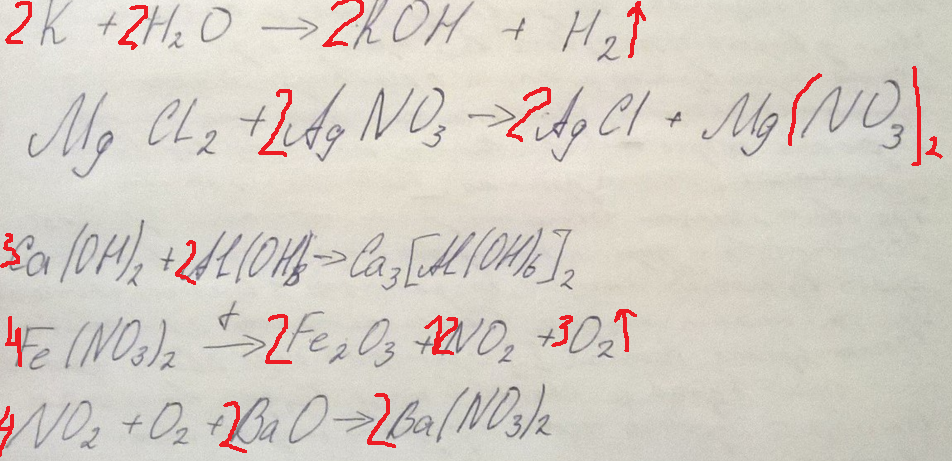 2K + 2H₂O → 2KOH + H₂↑
MgCl₂ + 2AgNO₃ → 2AgCl + Mg(NO₃)₂
3Ca(OH)₂ + 2Al(OH)₃ → Ca₃[Al(OH)₆]₂
4Fe(NO₃)₂ t→ 2Fe₂O₃ + 12NO₂ + 3O₂↑
4NO₂ + O₂ + 2BaO → 2Ba(NO₃)₂